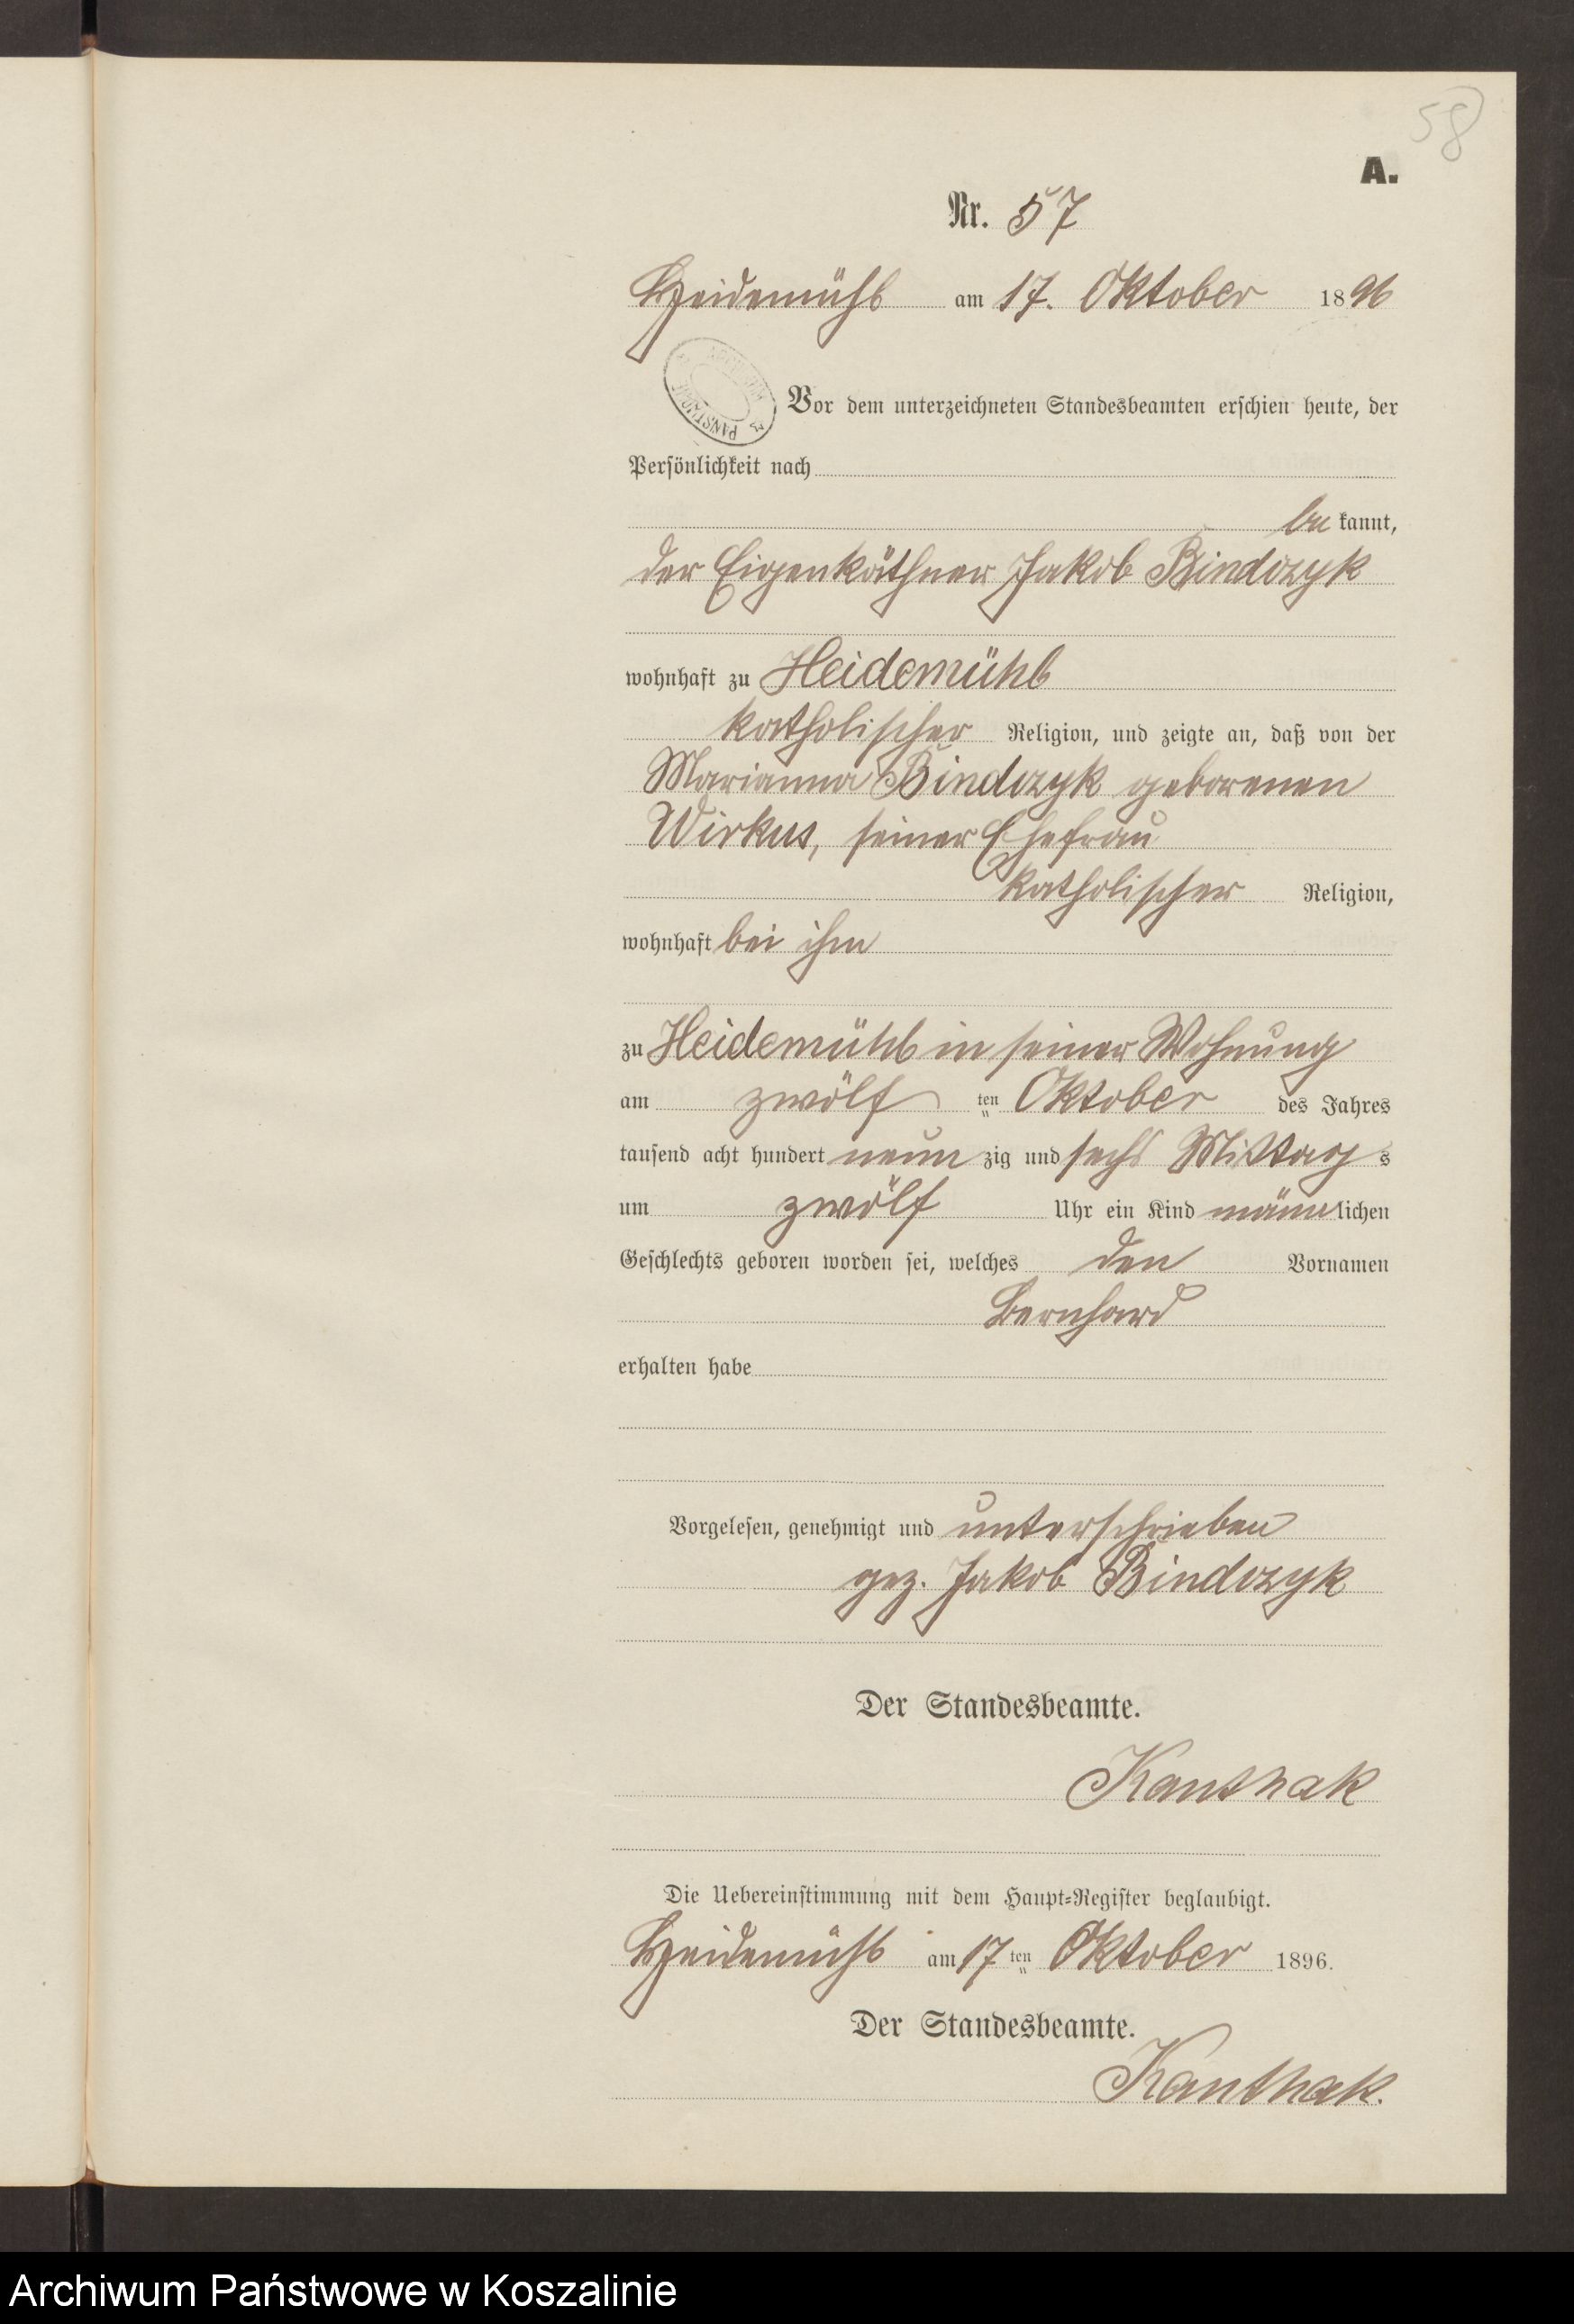 58
A.
Nr. 57
Heidemühl am 17. Oktober 1896
Vor dem unterzeichneten Standesbeamten erschien heute, der
Persönlichkeit nach
be kannt,
der Eigenkäthner Jakob Bindczyk
wohnhaft zu Heidemühl
katholischer Religion, und zeigte an, daß von der
Marianna Bindczyk geborenen
Wirkus, seiner Ehefrau
katholischer Religion,
wohnhaft bei ihm
zu Heidemühl in seiner Wohnung
am zwölf ten Oktober des Jahres
tausend acht hundert neun zig und sechs Mittag s
um zwölf Uhr ein Kind männlichen
Geschlechts geboren worden sei, welches den Vornamen
Bernhard
erhalten habe
Vorgelesen, genehmigt und unterschrieben
gez. Jakob Bindczyk
Der Standesbeamte.
Kanthak
Die Uebereinstimmung mit dem Haupt=Register beglaubigt.
Heidemühl am 17 ten Oktober 1896.
Der Standesbeamte.
Kanthak.
Archiwum Państwowe w Koszalinie